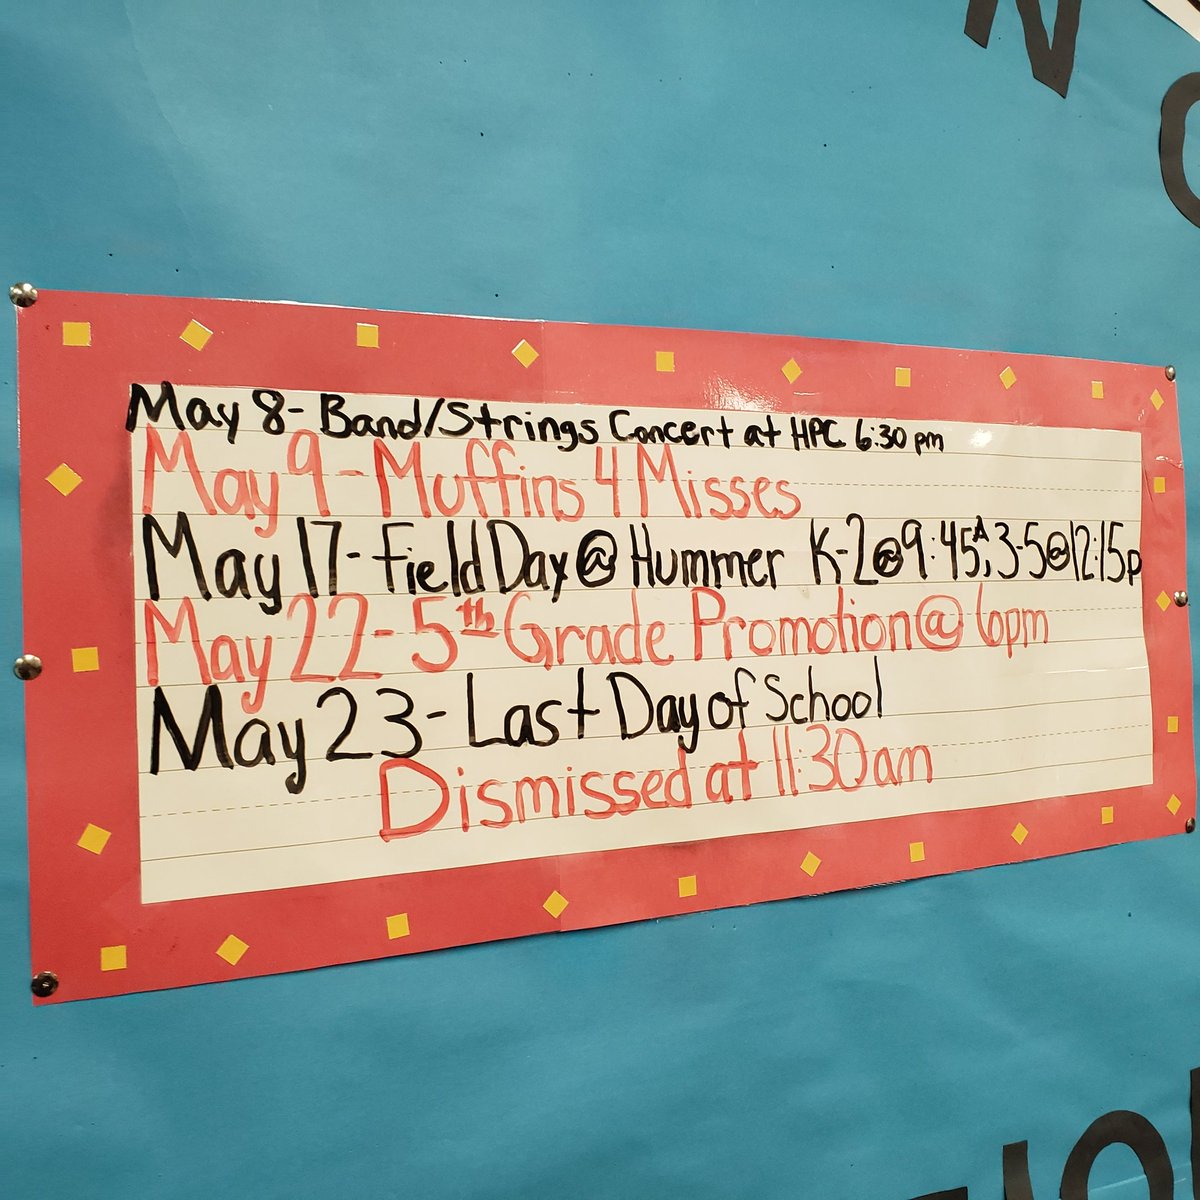 May 8- Band/Strings Concert at HPC 6:30 pm
May 9 - Muffins 4 Misses
May 17- Field Day @ Hummer K-2@9:45A; 3-5@12:15p
May 22- 5th Grade Promotion @ 6pm
May 23- Last Day of School
Dismissed at 11:30am